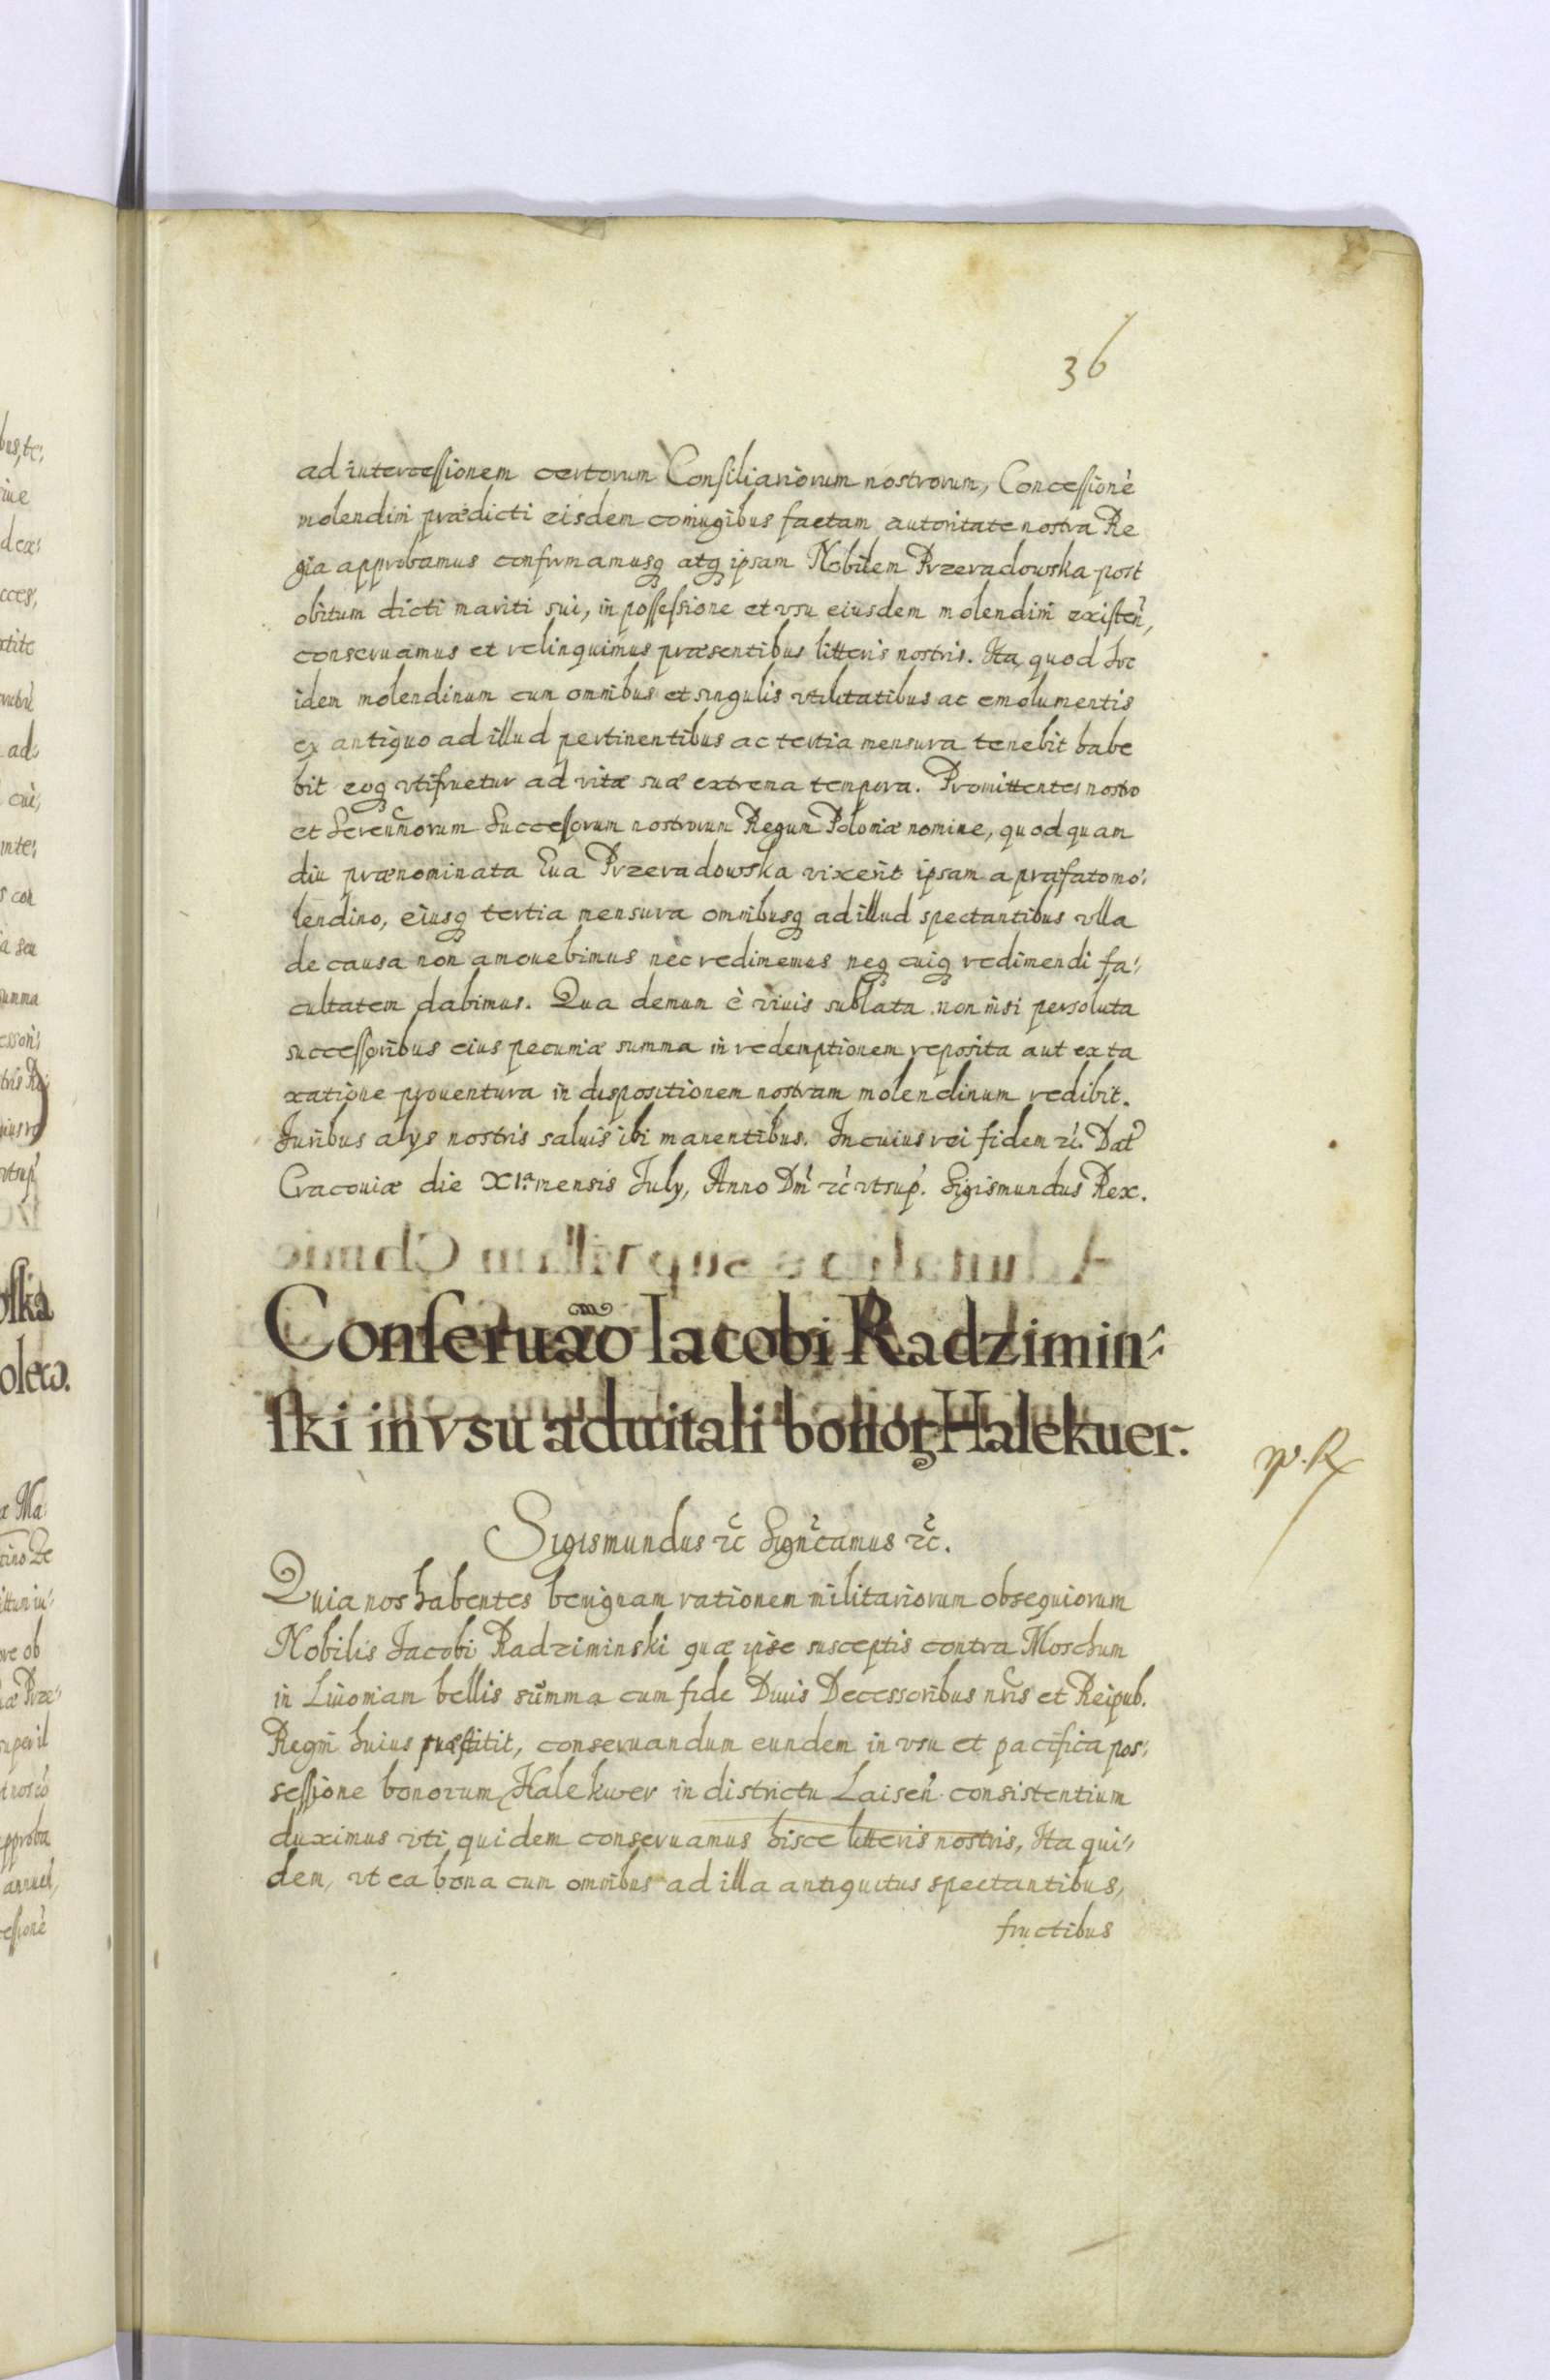 36
ad intercessionem certorum Consiliariorum nostrorum, Concessionē
molendini prædicti eisdem coniugibus factam autoritate nostra Re
gia approbamus confirmamusq̨ atq̨ ipsam Nobilem Przeradowska post
obitum dicti mariti sui, in possessione et vsu eiusdem molendini existen̄,
conseruamus et relinquimus præsentibus litteris nostris. Ita quod
idem molendinum cum omnibus et singulis vtilitatibus ac emolumentis
ex antiquo ad illud pertinentibus ac tertia mensura tenebit habe
bit eoq̨ vtifruetur ad vitæ suæ extrema tempora. Promittentes nostro
et Seren̄norum Successorum nostrorum Regum Poloniæ nomine, quod quam
diu prænominata Eua Przeradowska vixerit ipsam a præfato mo:
lendino, eiusq̨ tertia mensura omnibusq̨ ad illud spectantibus vlla
de causa non amouebimus nec redimemus neq̨ cuiq̨ redimendi fa:
cultatem dabimus. Qua demum è viuis sublata non nisi persoluta
successoribus eius pecuniæ summa in redemptionem reposita aut ex ta
xatione prouentura in dispositionem nostram molendinum redibit.
Iuribus alys nostris saluis ibi manentibus. In cuius rei fidem ꝛc̄. Dat̄
Cracouiæ die XIª mensis July, Anno Dm̄ ꝛc̄ vtsup̄. Sigismundus Rex.
Conseruāo Iacobi Radzimin:
ski in vsu aduitali bonoꝝ Halekuer.
w. R
Sigismundus ꝛc̄ Sign̄camus ꝛc̄.
Quia nos habentes benignam rationem militariorum obsequiorum
Nobilis Jacobi Radziminski quæ ipse susceptis contra Moschum
in Liuoniam bellis summa cum fide Diuis Decessoribus nr̄is et Reipub.
Regni huius præstitit, conseruandum eundem in vsu et pacifica pos:
sessione bonorum Halekwer in districtu Laisen̄ consistentium
duximus vti quidem conseruamus hisce litteris nostris, Ita qui:
dem, vt ea bona cum omnibus ad illa antiquitus spectantibus,
fructibus